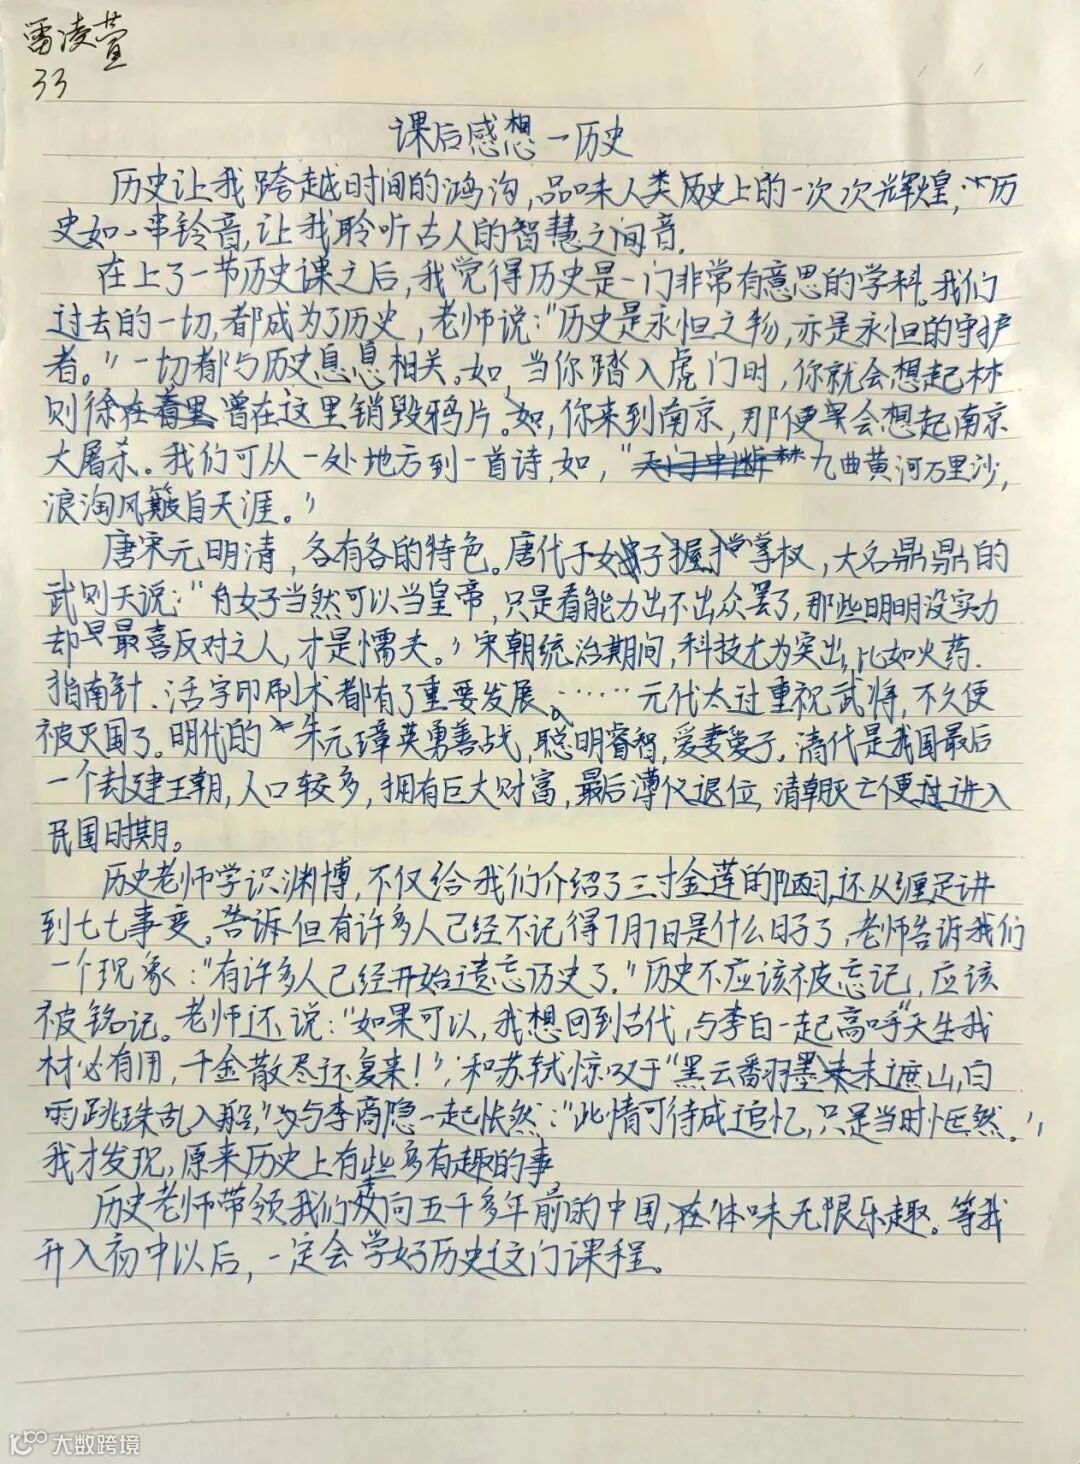 雷凌萱
33
课后感想一历史
历史让我跨越时间的鸿沟,品味人类历史上的一次次辉煌;历
史如一串铃音,让我聆听古人的智慧之间音.
在上了一节历史课之后,我觉得历史是一门非常有意思的学科。我们
过去的一切,都成为了历史,老师说:“历史是永恒之物,亦是永恒的守护
者。”一切都与历史息息相关。如,当你踏入虎门时,你就会想起林
则徐曾在这里销毁鸦片。如,你来到南京,那便会想起南京
大屠杀。我们可从一处地方到一首诗,如,“九曲黄河万里沙,
浪淘风簸自天涯。”
唐宋元明清,各有各的特色。唐代于女子握掌权,大名鼎鼎的
武则天说:“女子当然可以当皇帝,只是看能力出不出众罢了,那些明明没实力
却早最喜反对之人,才是懦夫。”宋朝统治期间,科技尤为突出,比如火药.
指南针、活字印刷术都有了重要发展。……元代太过重视武将,不久便
被灭国了。明代的朱元璋英勇善战,聪明睿智,爱妻爱子。清代是我国最后
一个封建王朝,人口较多,拥有巨大财富,最后溥仪退位,清朝灭亡便进入
民国时期。
历史老师学识渊博,不仅给我们介绍了三寸金莲的陋习,还从缠足讲
到七七事变。告诉但有许多人已经不记得7月7日是什么日子了,老师告诉我们
一个现象:“有许多人已经开始遗忘历史了。”历史不应该被忘记,应该
被铭记。老师还说:“如果可以,我想回到古代,与李白一起高呼“天生我
材必有用,千金散尽还复来!”,和苏轼惊叹于“黑云翻墨未遮山,白
雨跳珠乱入船,”与李商隐一起怅然:“此情可待成追忆,只是当时惘然。”,
我才发现,原来历史上有些多有趣的事
历史老师带领我们走向五千多年前的中国,在体味无限乐趣。等我
升入初中以后,一定会学好历史这门课程。
大数跨境